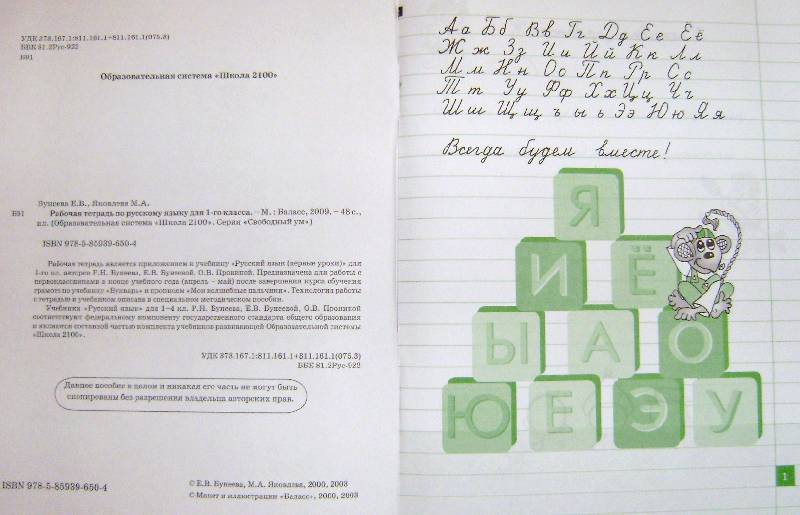 УДК 373.167.1:811.161.1+811.161.1(075.3)
ББК 81.2Рус-922
Б91
Образовательная система «Школа 2100»
Бунеева Е.В., Яковлева М.А.
Б91 Рабочая тетрадь по русскому языку для 1-го класса. – М. : Баласс, 2009. – 48 с.,
ил. (Образовательная система «Школа 2100». Серия «Свободный ум»)
ISBN 978-5-85939-650-4
Рабочая тетрадь является приложением к учебнику «Русский язык (первые уроки)» для
1-го кл. авторов Р.Н. Бунеева, Е.В. Бунеевой, О.В. Прониной. Предназначена для работы с
первоклассниками в конце учебного года (апрель – май) после завершения курса обучения
грамоте по учебнику «Букварь» и прописям «Мои волшебные пальчики». Технология работы
с тетрадью и учебником описана в специальном методическом пособии.
Учебники «Русский язык» для 1–4 кл. Р.Н. Бунеева, Е.В. Бунеевой, О.В. Прониной
соответствуют федеральному компоненту государственного стандарта общего образования
и являются составной частью комплекта учебников развивающей Образовательной системы
«Школа 2100».
УДК 373.167.1:811.161.1+811.161.1(075.3)
ББК 81.2Рус-922
Данное пособие в целом и никакая его часть не могут быть
скопированы без разрешения владельца авторских прав.
ISBN 978-5-85939-650-4
© Е.В. Бунеева, М.А. Яковлева, 2000, 2003
© Макет и иллюстрации «Баласс», 2000, 2003
Аа Бб Вв Гг Дд Ее Ёё
Жж Зз Ии Йй Кк Лл
Мм Нн Оо Пп Рр Сс
Тт Уу Фф Хх Цц Чч
Шш Щщ ъ ы ь Ээ Юю Яя
Всегда будем вместе!
Я
И Ё
Ы А О
Ю Е Э У
1